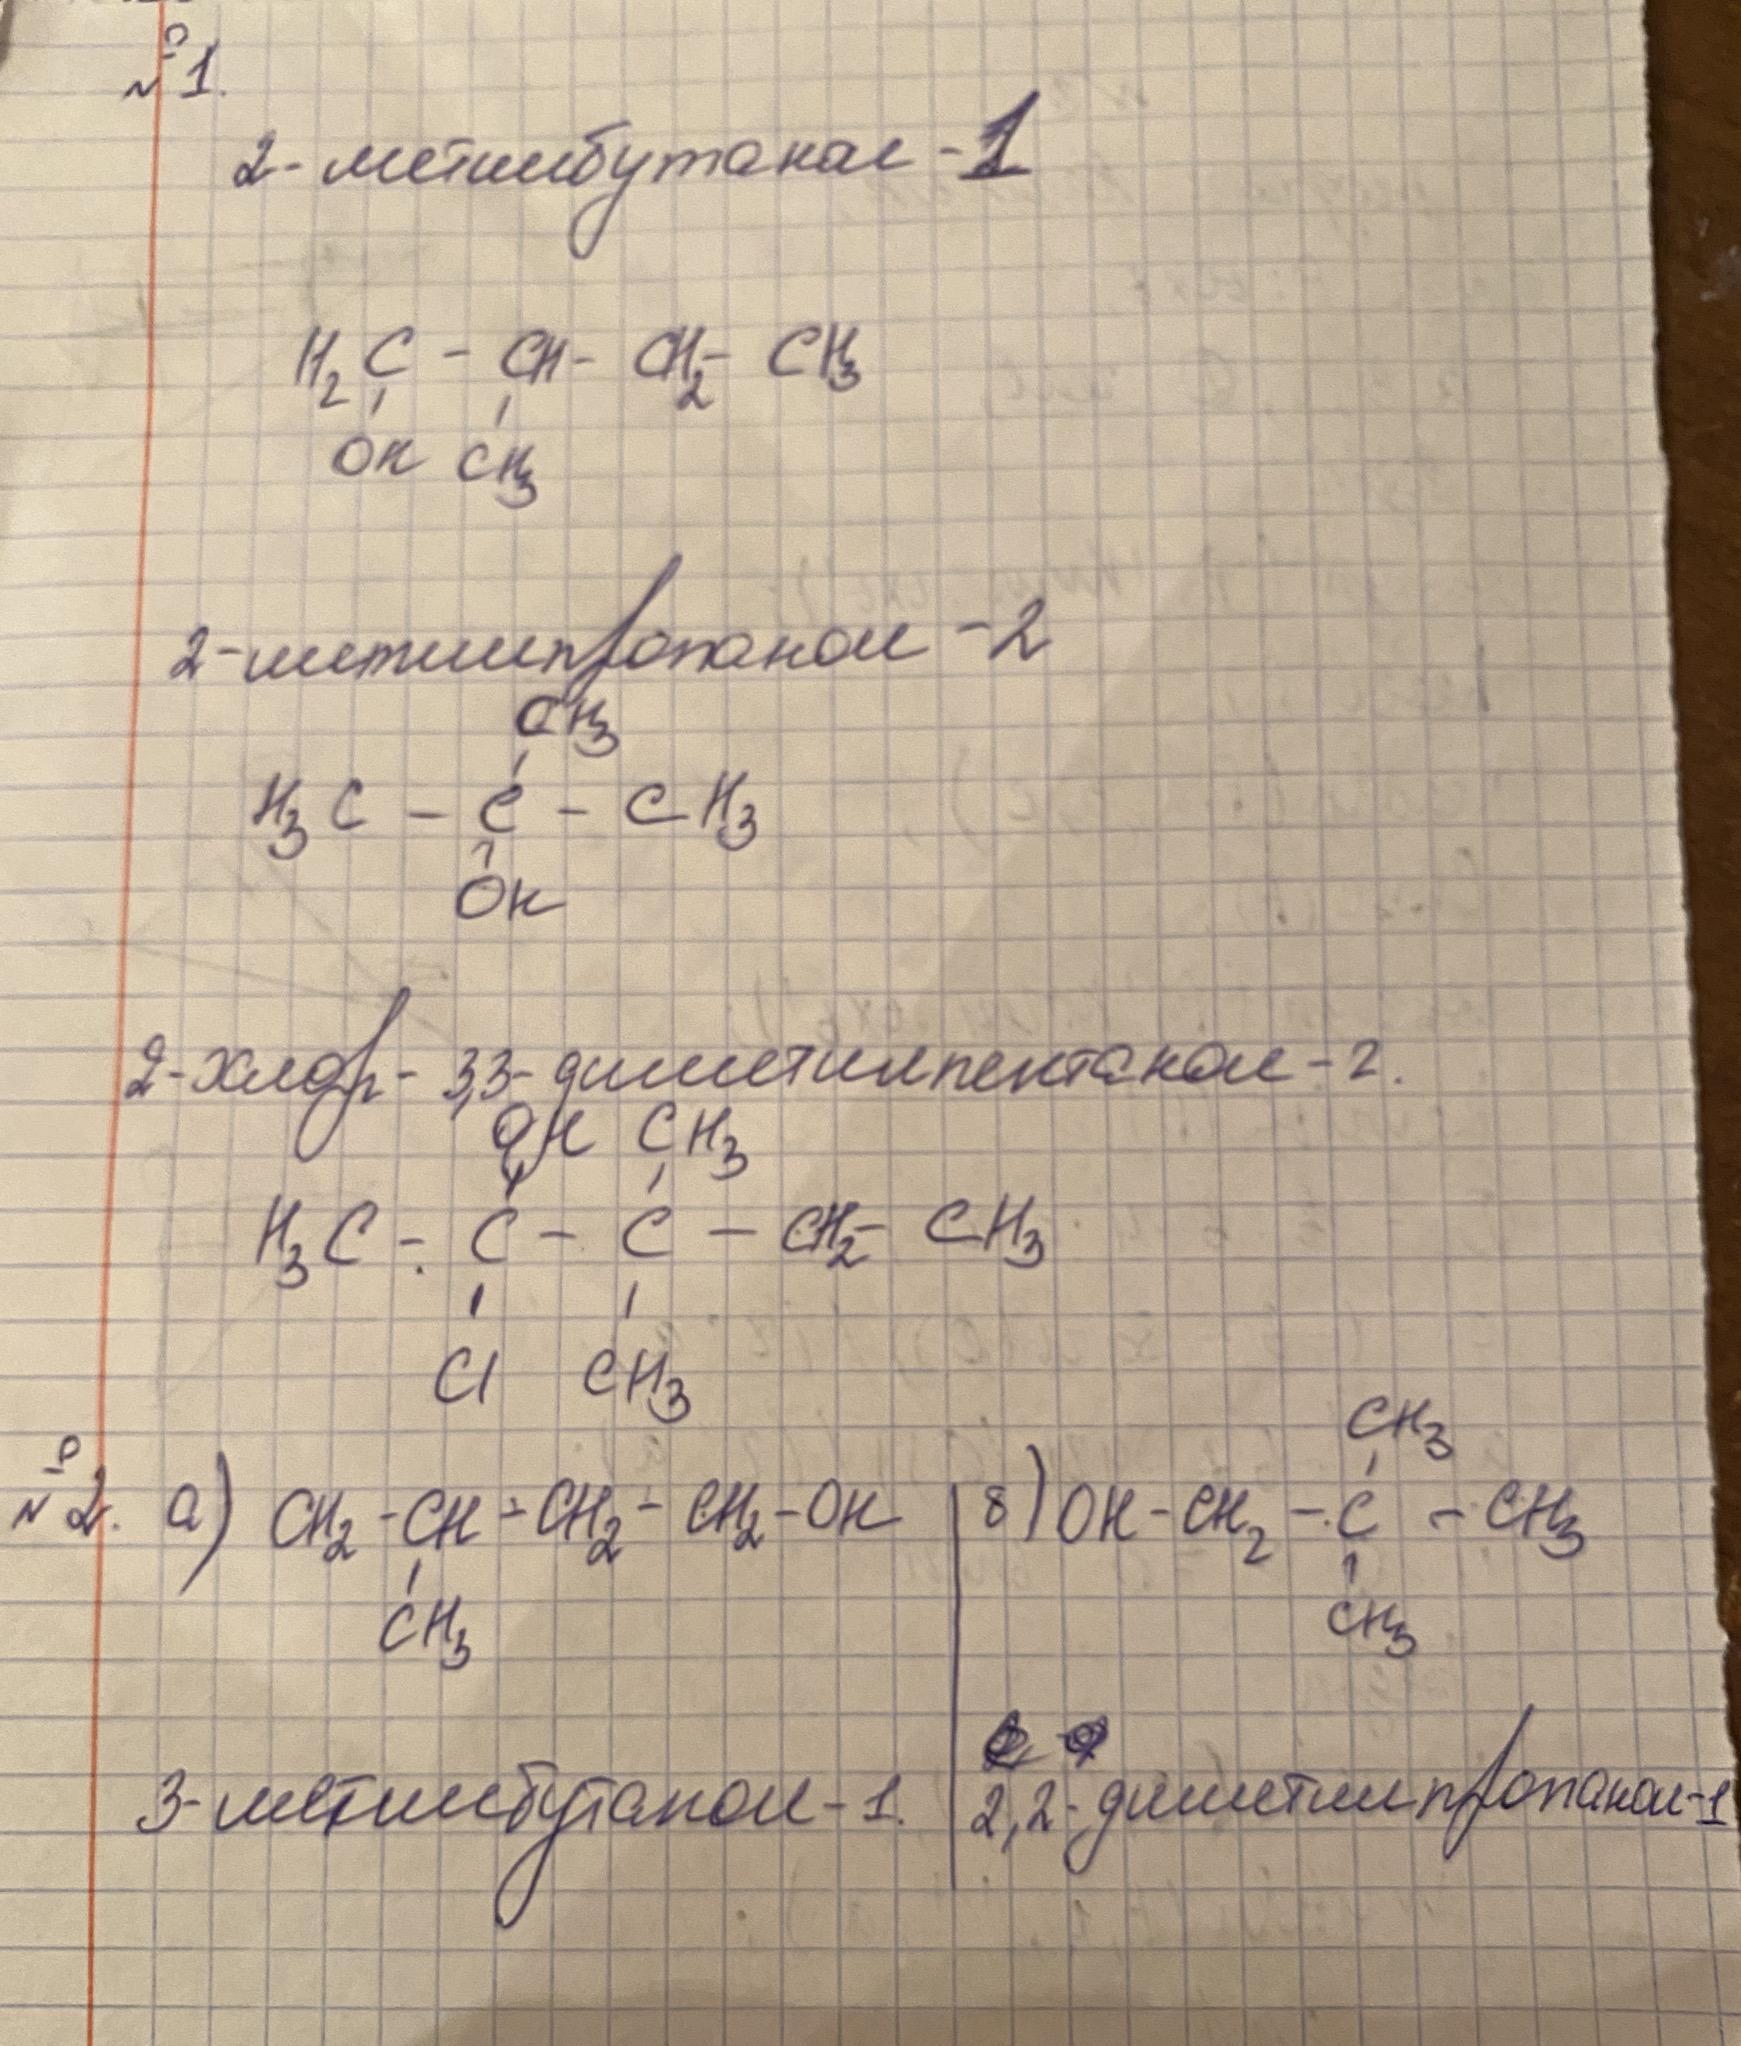 №1.
2-метилбутанол-1
H₂C - CH - CH₂ - CH₃
OH CH₃
2-метилпропанол-2
CH₃
H₃C - C - CH₃
OH
2-хлор-3,3-диметилпентанол-2.
OH CH₃
H₃C - C - C - CH₂ - CH₃
Cl CH₃
№2. а) CH₂ - CH - CH₂ - CH₂ - OH
CH₃
3-метилбутанол-1.
CH₃
б) OH - CH₂ - C - CH₃
CH₃
2,2-диметилпропанол-1